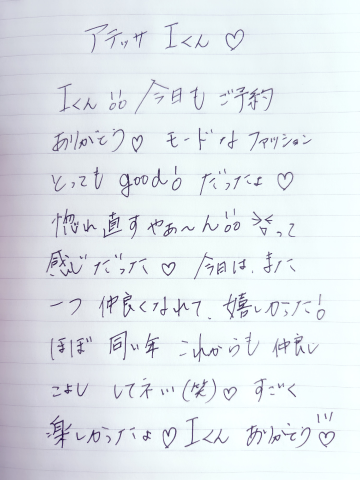 アテッサ Iくん♡
Iくん!! 今日も ご予約
ありがとう♡ モードな ファッション
とっても good! だったよ♡
惚れ直すやぁ〜ん!! って
感じだった♡ 今日は、また
一つ 仲良くなれて、嬉しかった!
ほぼ 同い年 これからも 仲良し
こよし してネ(笑)♡ すごく
楽しかったよ♡ Iくん ありがとう♡